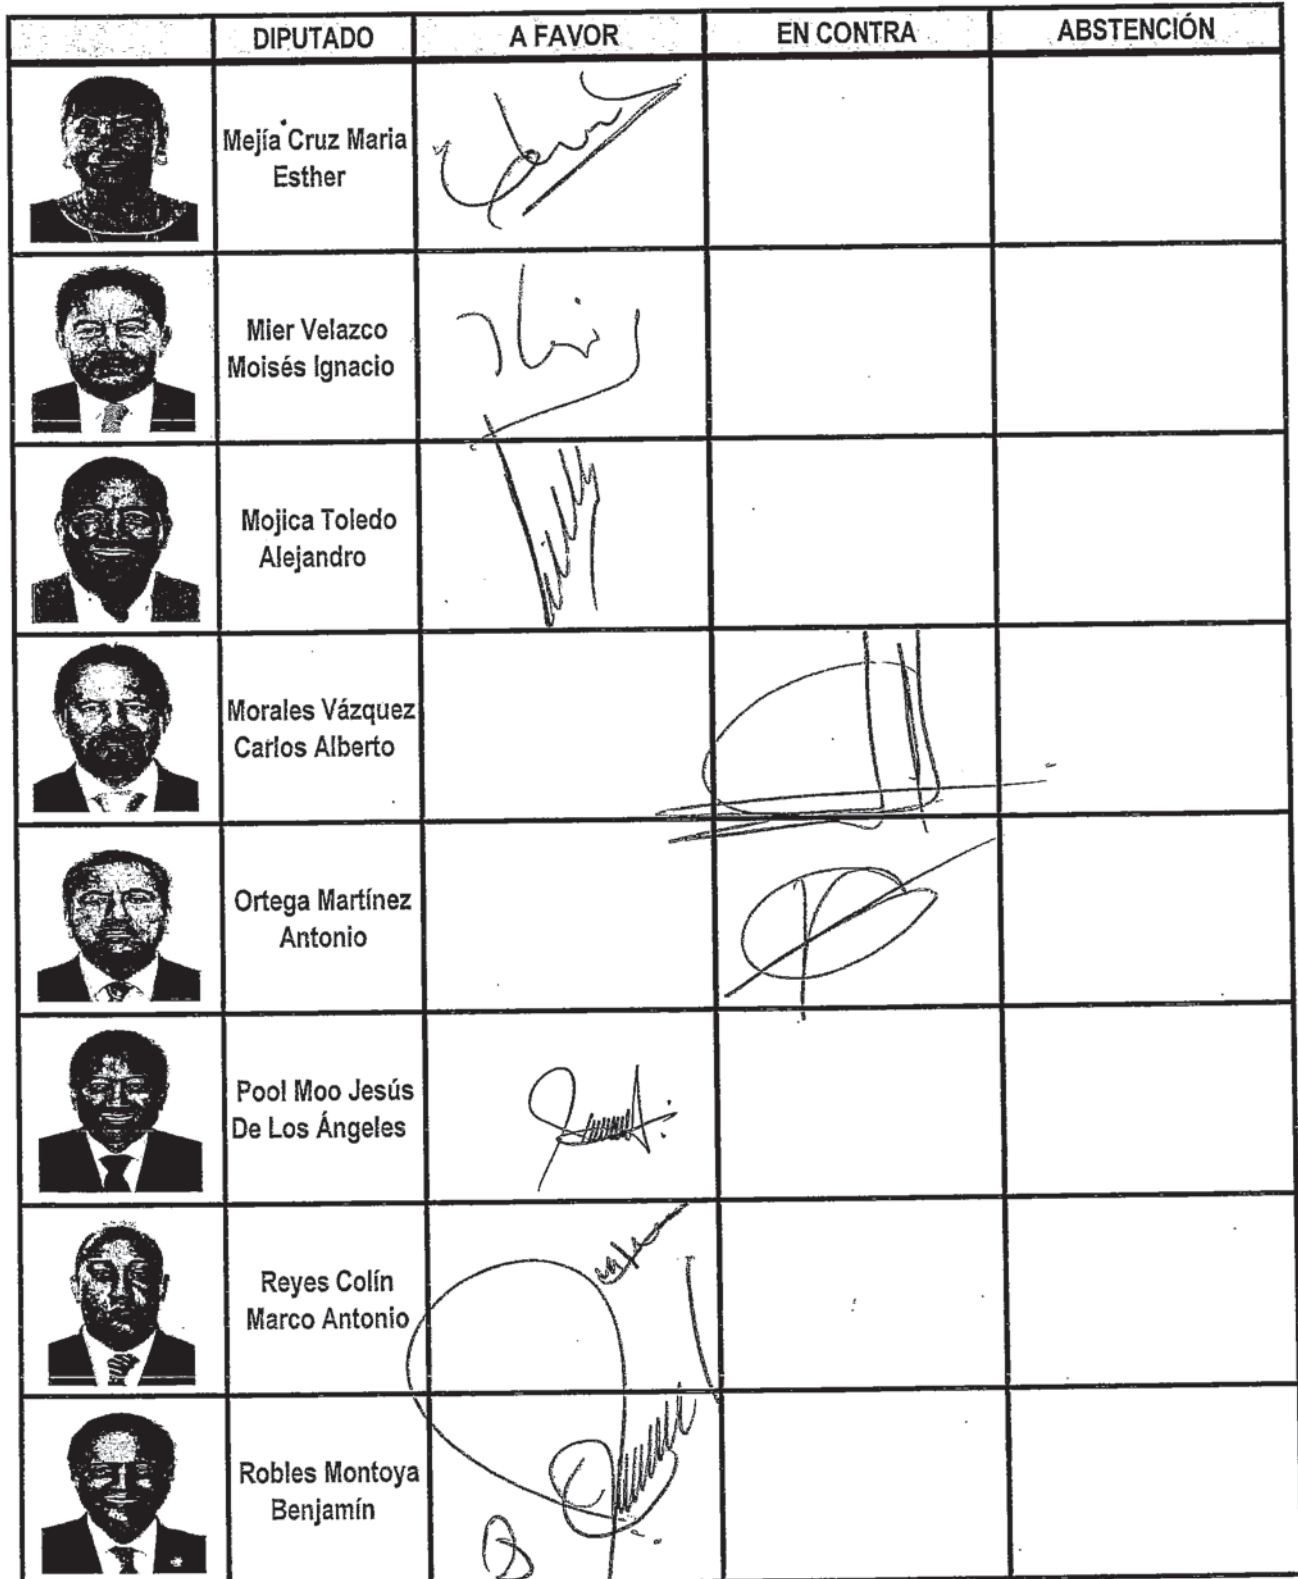 DIPUTADO A FAVOR EN CONTRA ABSTENCIÓN
Mejía Cruz Maria
Esther
Mier Velazco
Moisés Ignacio
Mojica Toledo
Alejandro
Morales Vázquez
Carlos Alberto
Ortega Martínez
Antonio
Pool Moo Jesús
De Los Ángeles
Reyes Colín
Marco Antonio
Robles Montoya
Benjamín